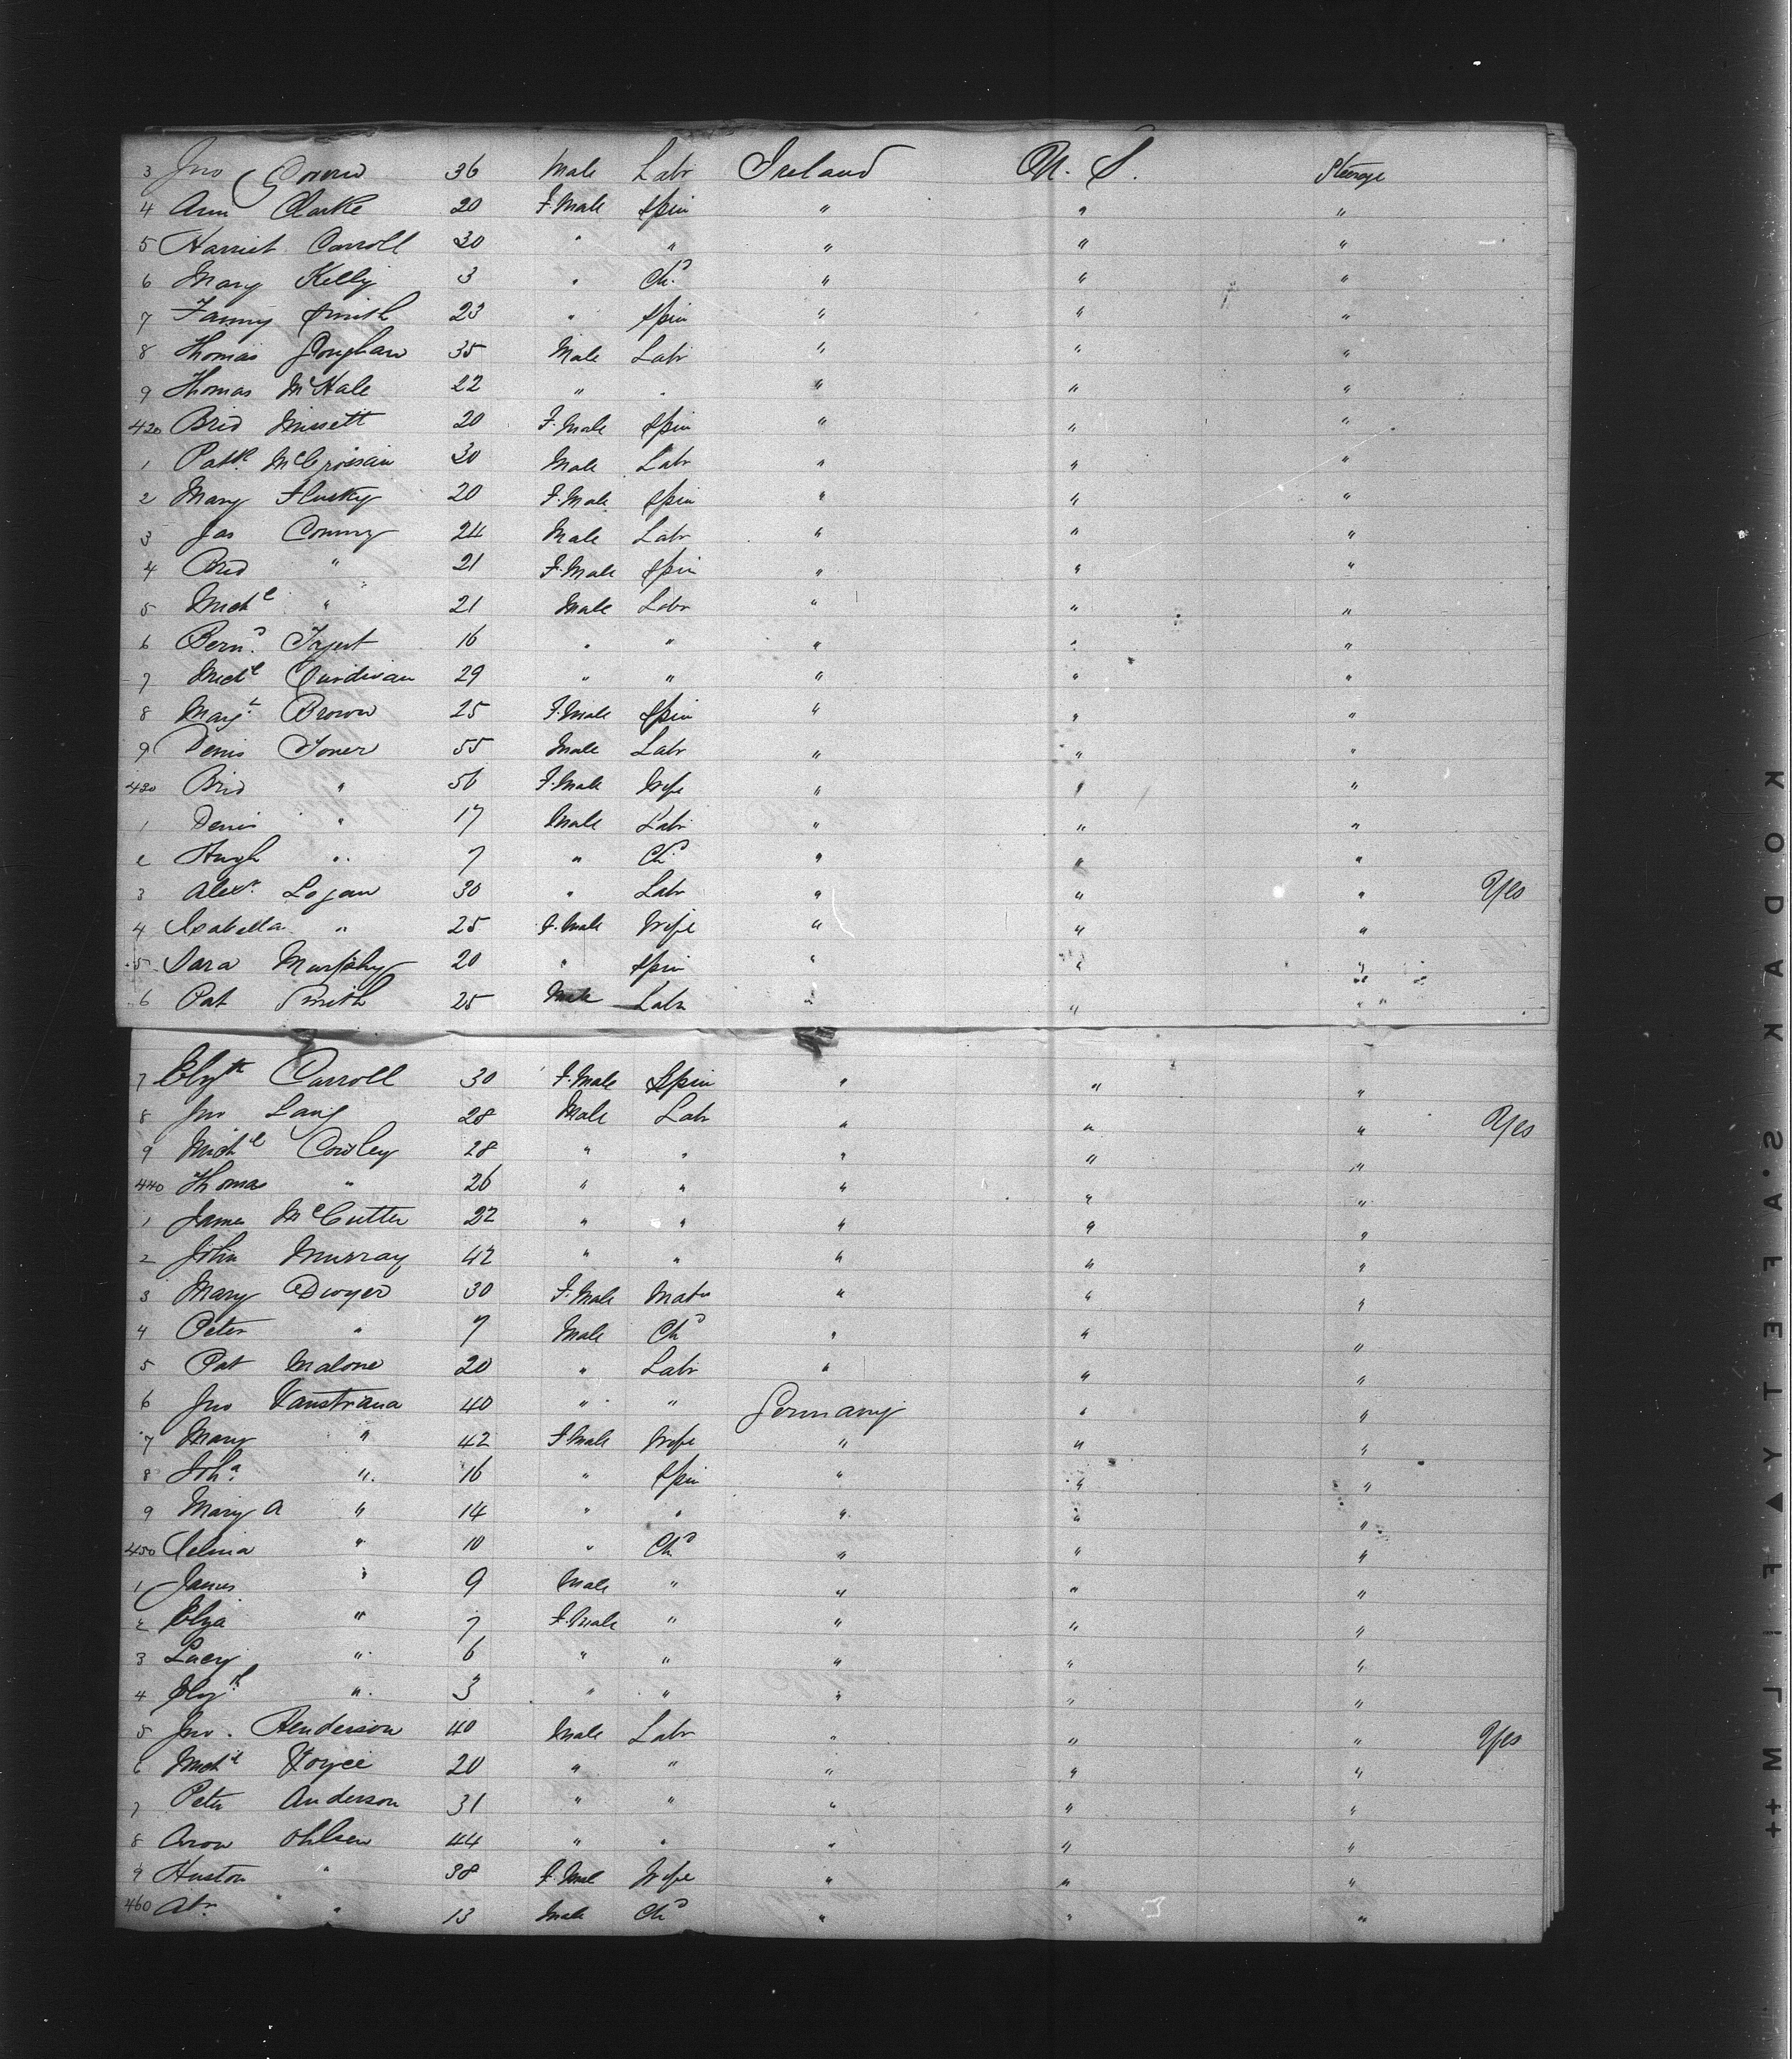 3 Jno 36 Male Labr Ireland U. S. Steerage
4 Ann Clarke 20 F. Male Spin " " "
5 Harriet Carroll 30 " " " " "
6 Mary Kelly 3 " Chd " " "
7 Fanny Smith 23 " Spin " " "
8 Thomas 35 Male Labr " " "
9 Thomas McHale 22 " " " " "
420 Brid Missett 20 F. Male Spin " " "
1 Patk 30 Male Labr " " "
2 Mary Flusky 20 F. Male Spin " " "
3 Jas Conmy 24 Male Labr " " "
4 Brid " 21 F. Male Spin " " "
5 Michl " 21 Male Labr " " "
6 Bernd 16 " " " " "
7 Michl 29 " " " " "
8 Margt Brown 25 F. Male Spin " " "
9 Denis Toner 55 Male Labr " " "
430 Brid " 56 F. Male Wife " " "
1 Denis " 17 Male Labr " " "
2 Hugh " 7 " Chd " " "
3 Alexr Logan 30 " Labr " " " Yes
4 Isabella " 25 F. Male Wife " " "
5 Sara Murphy 20 " Spin " " "
6 Pat Smith 25 Male Labr " " "
7 Elizth Carroll 30 F. Male Spin " " "
8 Jno Lang 28 Male Labr " " " Yes
9 Michl Cowley 28 " " " " "
440 Thomas " 26 " " " " "
1 James McCutter 22 " " " " "
2 John Murray 42 " " " " "
3 Mary Dwyer 30 F. Male Matn " " "
4 Peter " 7 Male Chd " " "
5 Pat Malone 20 " Labr " " "
6 Jno Vanstrana 40 " " Germany " "
7 Mary " 42 F Male Wife " " "
8 Joha " 16 " Spin " " "
9 Mary A " 14 " " " " "
450 Selina " 10 " Chd " " "
1 James " 9 Male " " " "
2 Eliza " 7 F. Male " " " "
3 Lucy " 6 " " " " "
4 Elizth " 3 " " " " "
5 Jno. Henderson 40 Male Labr " " " Yes
6 Michl Joyce 20 " " " " "
7 Peter Anderson 31 " " " " "
8 Aron Ohlsen 44 " " " " "
9 Huston " 38 F. Male Wife " " "
460 Abr " 13 Male Chd " " "
KODAK S.A.F.E.T.Y ▲ F I L M ++